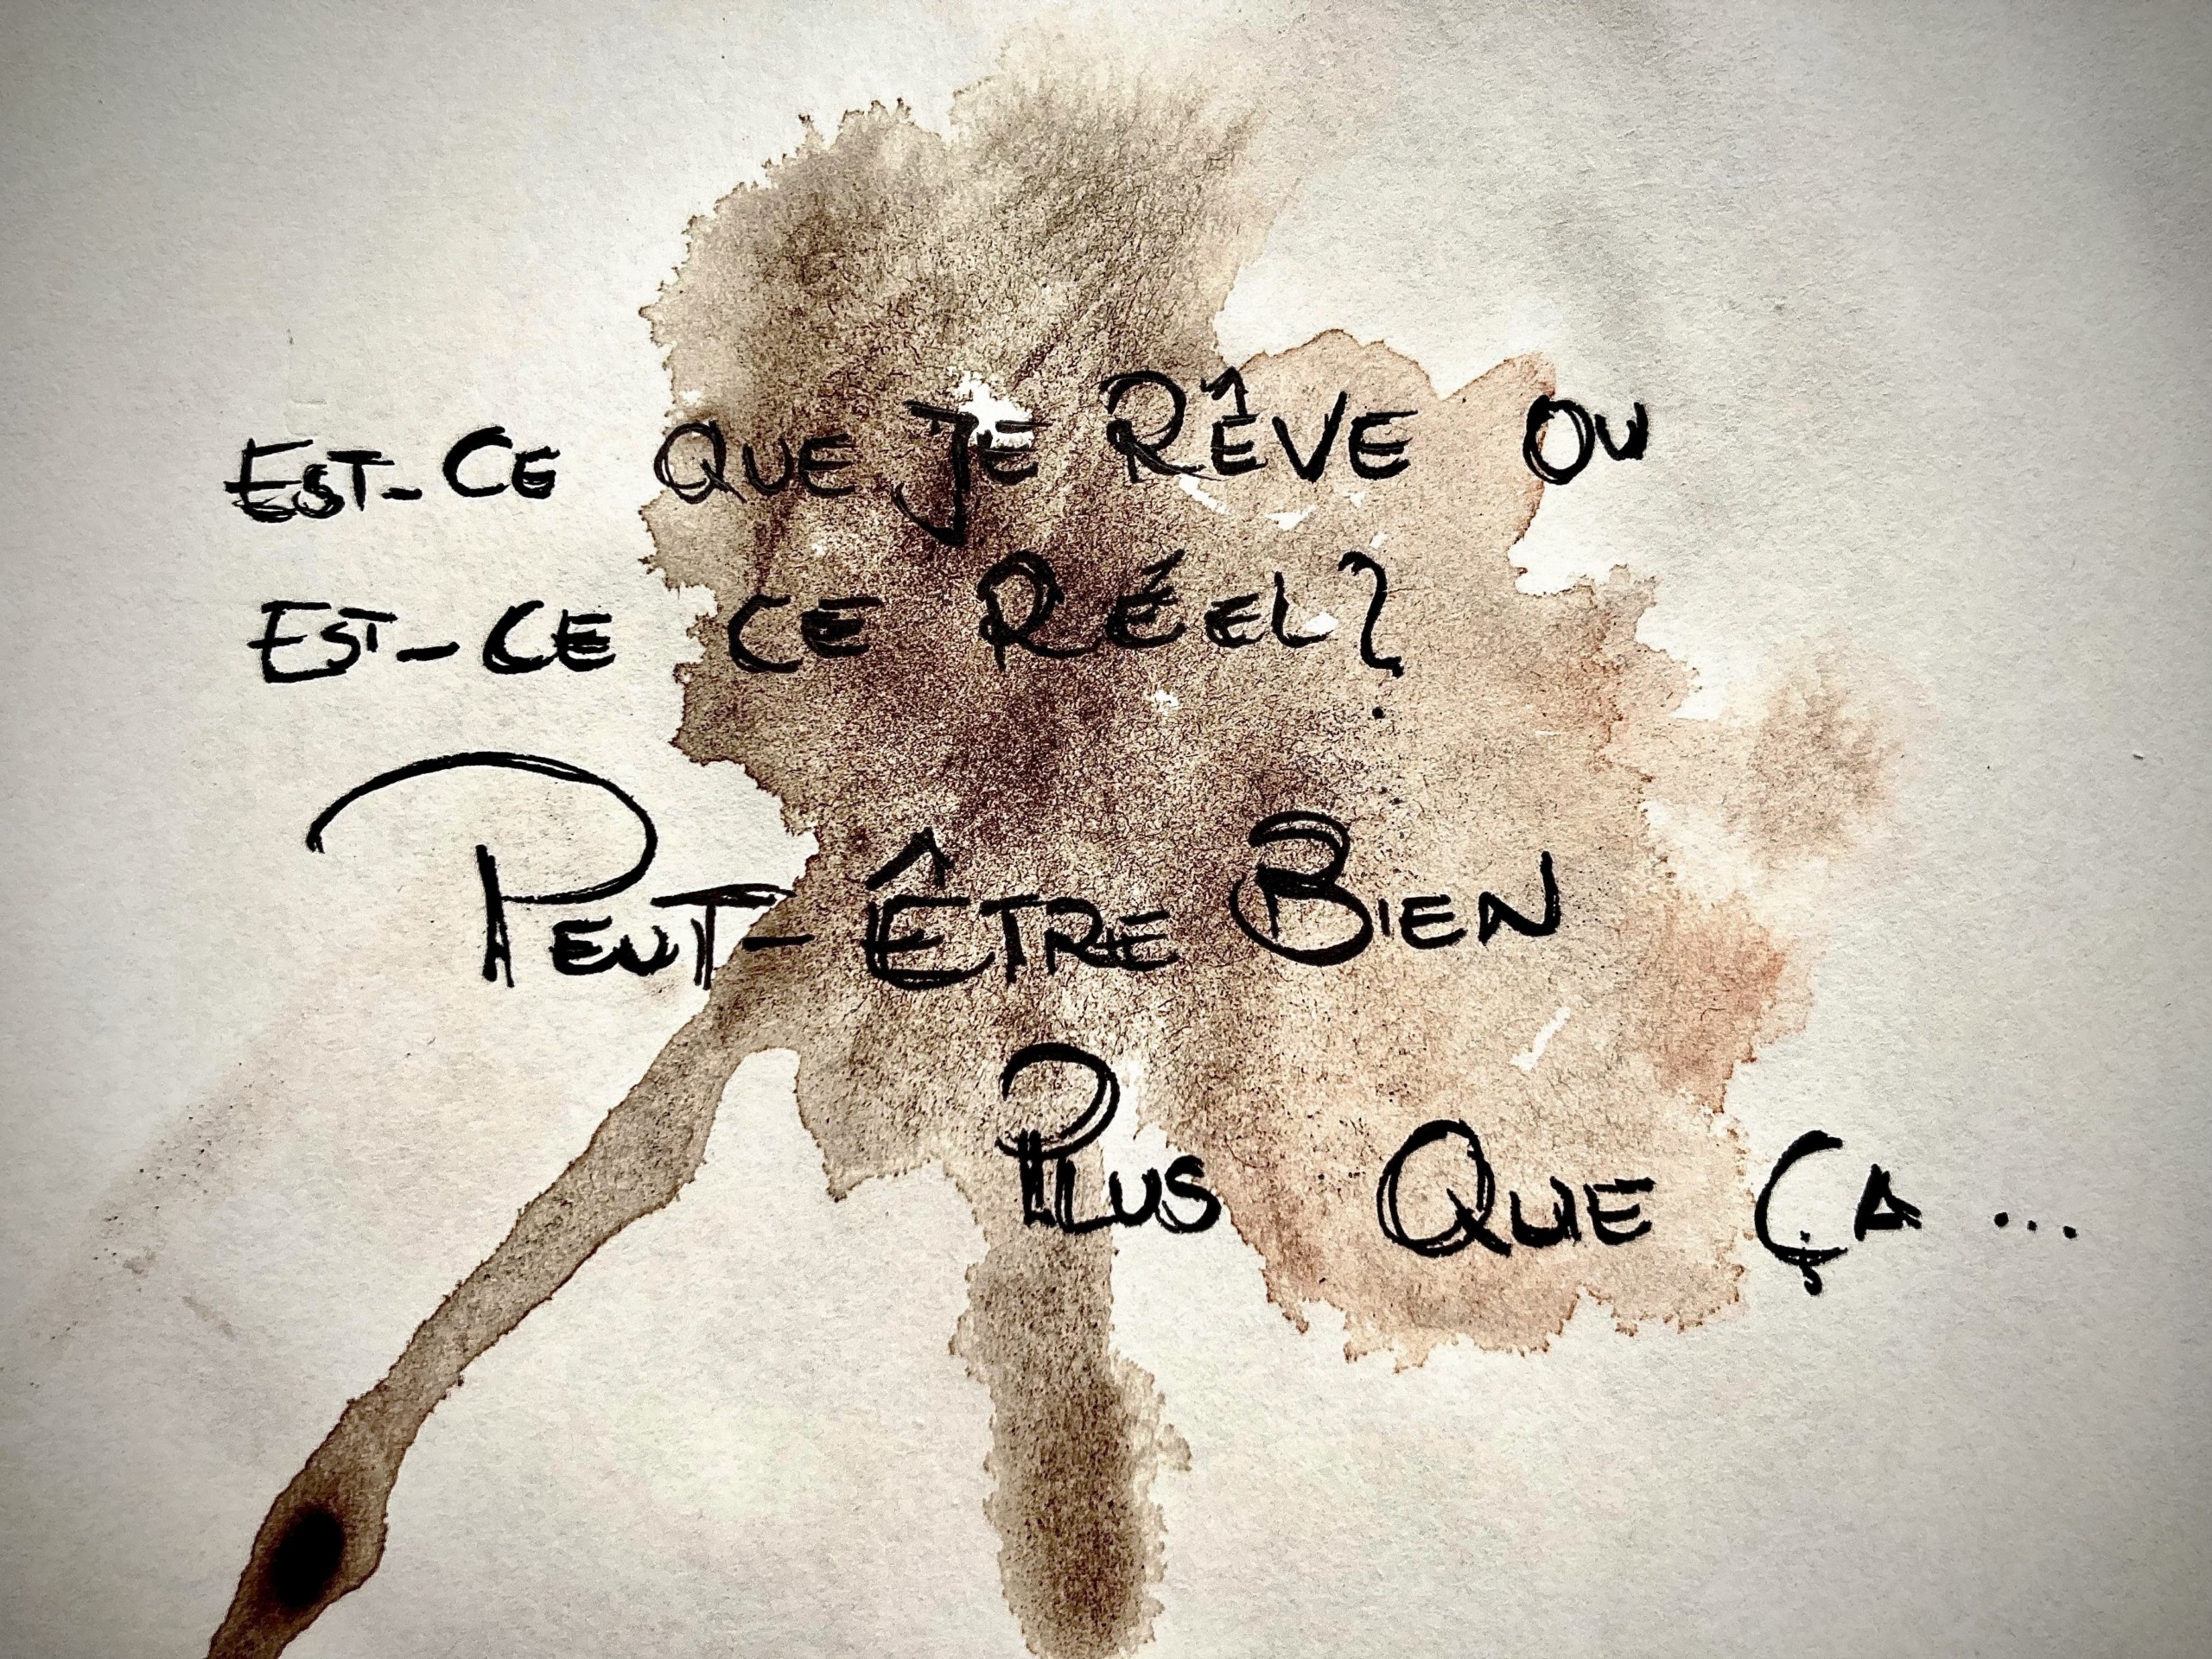 EST-CE QUE JE RÊVE OU
EST-CE CE RÉEL?
PEUT-ÊTRE BIEN
PLUS QUE ÇA...